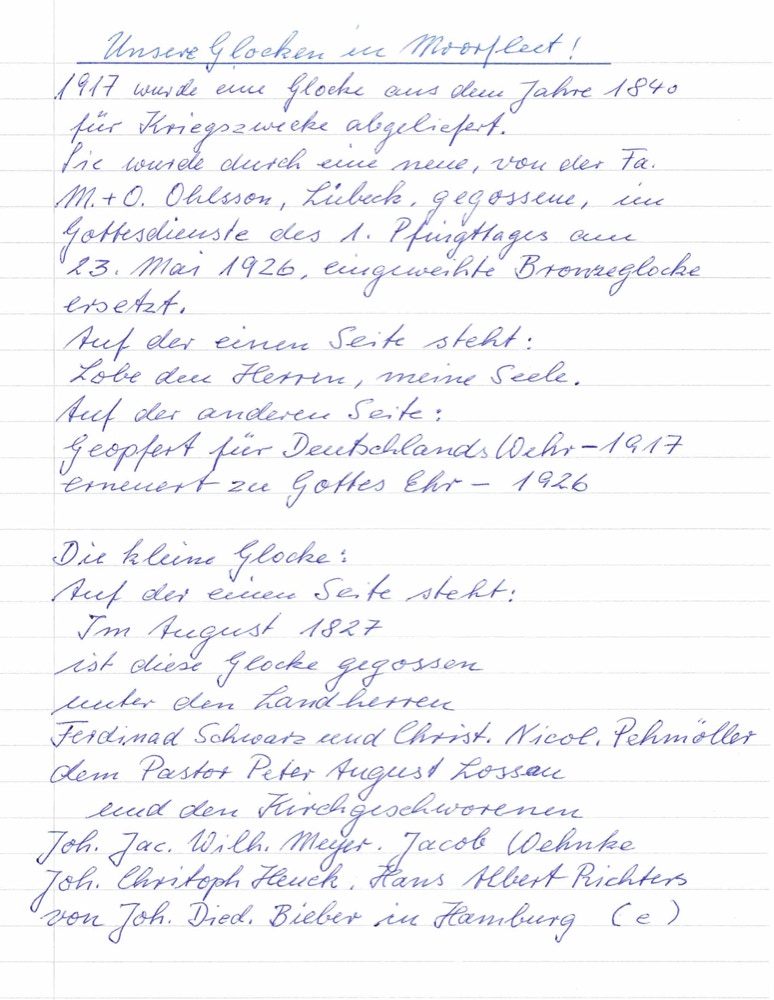 Unsere Glocken in Moorfleet!
1917 wurde eine Glocke aus dem Jahre 1840
für Kriegszwecke abgeliefert.
Sie wurde durch eine neue, von der Fa.
M. + O. Ohlsson, Lübeck, gegossene, im
Gottesdienste des 1. Pfingsttages am
23. Mai 1926, eingeweihte Bronzeglocke
ersetzt.
Auf der einen Seite steht:
Lobe den Herren, meine Seele.
Auf der anderen Seite:
Geopfert für Deutschlands Wehr - 1917
erneuert zu Gottes Ehr - 1926
Die kleine Glocke:
Auf der einen Seite steht:
Im August 1827
ist diese Glocke gegossen
unter den Landherren
Ferdinad Schwarz und Christ. Nicol. Pehmöller
dem Pastor Peter August Lossau
und den Kirchgeschworenen
Joh. Jac. Wilh. Meyer. Jacob Wehnke
Joh. Christoph Heuck, Hans Albert Richters
von Joh. Died. Bieber in Hamburg (e)